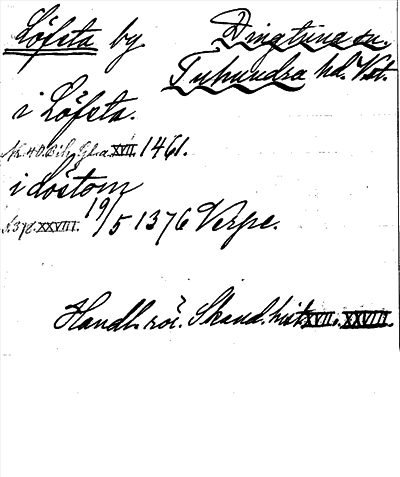 Löfsta by. Dingtuna sn.
Tuhundra hd. Vst.
i Löfsta.
Nr. 40. Bih. Gl. a. XVII. 1461.
i löstom
s. 378. XXVIII. 19/5 1376 Verpe.
Handl. rör. Skand. hist. XVII. XXVIII.